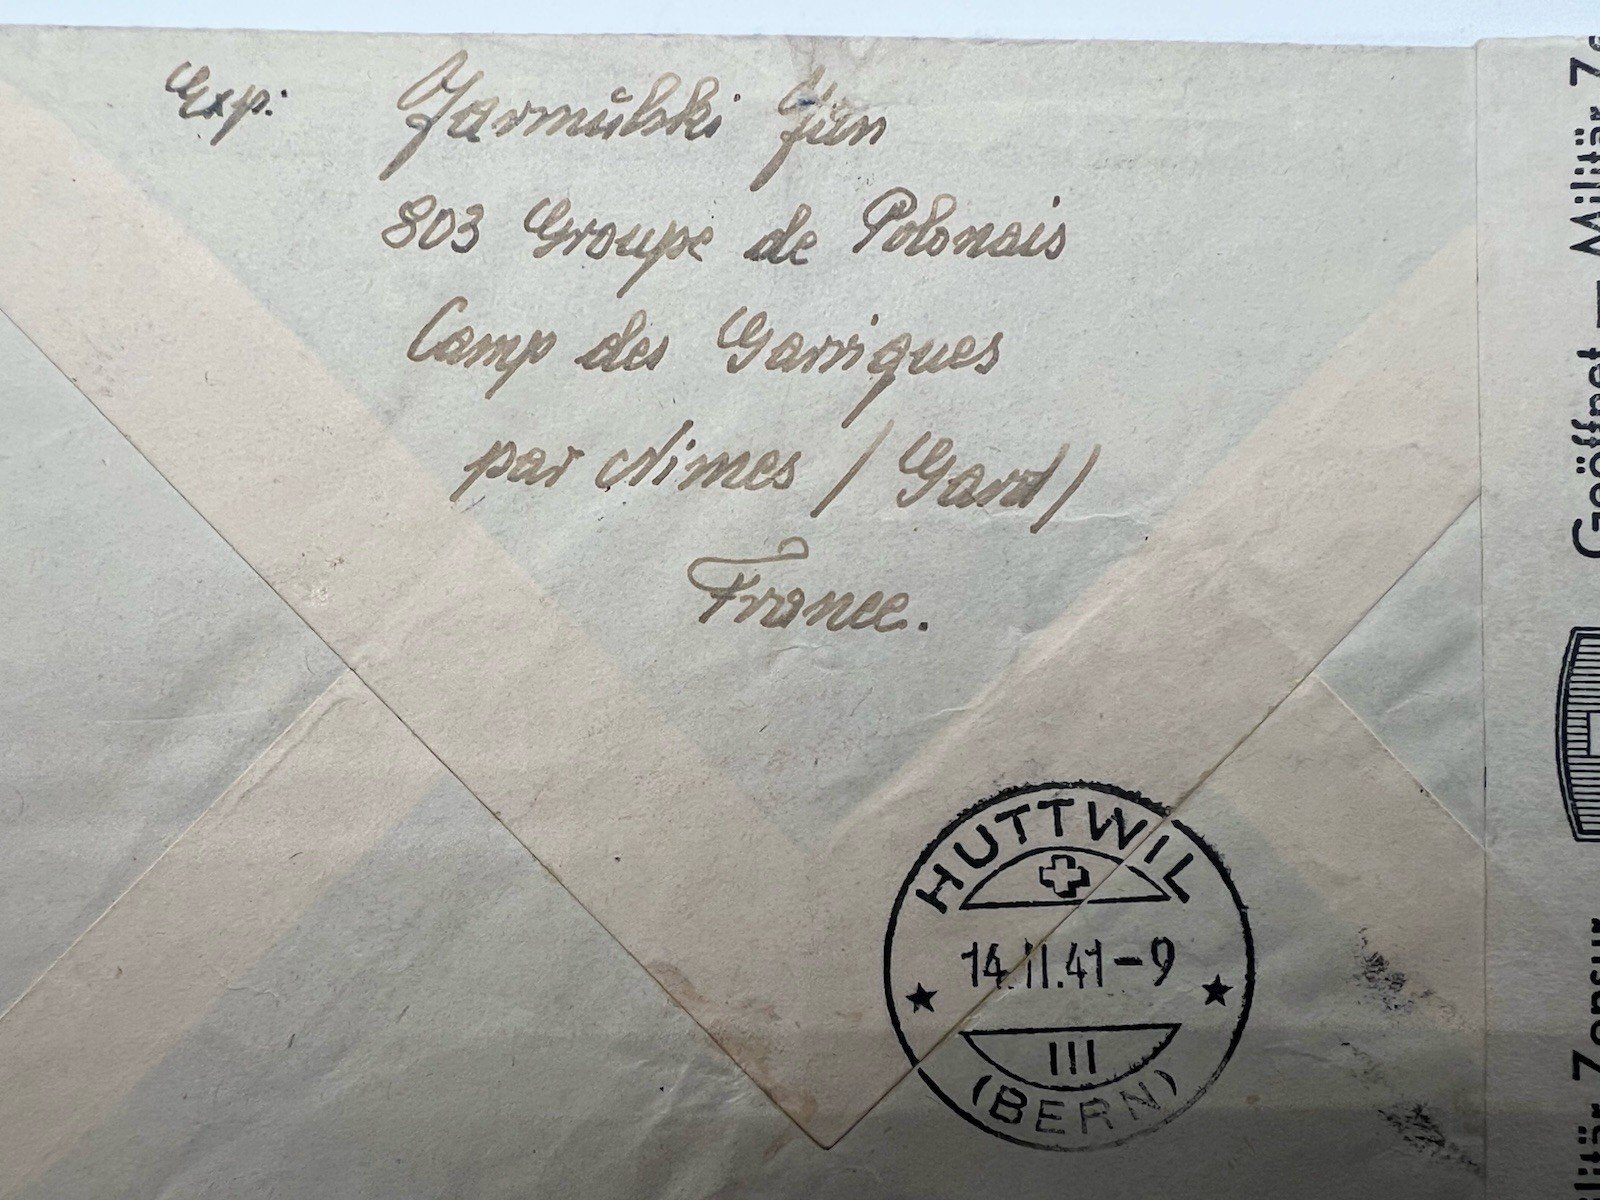 Exp: Jarmulski Jan
803 Groupe de Polonais
Camp des Garrigues
par Nimes / Gard/
France.
HUTTWIL
14.II.41-9
III
(BERN)
Geöffnet — Militär Ze
itär Zensur